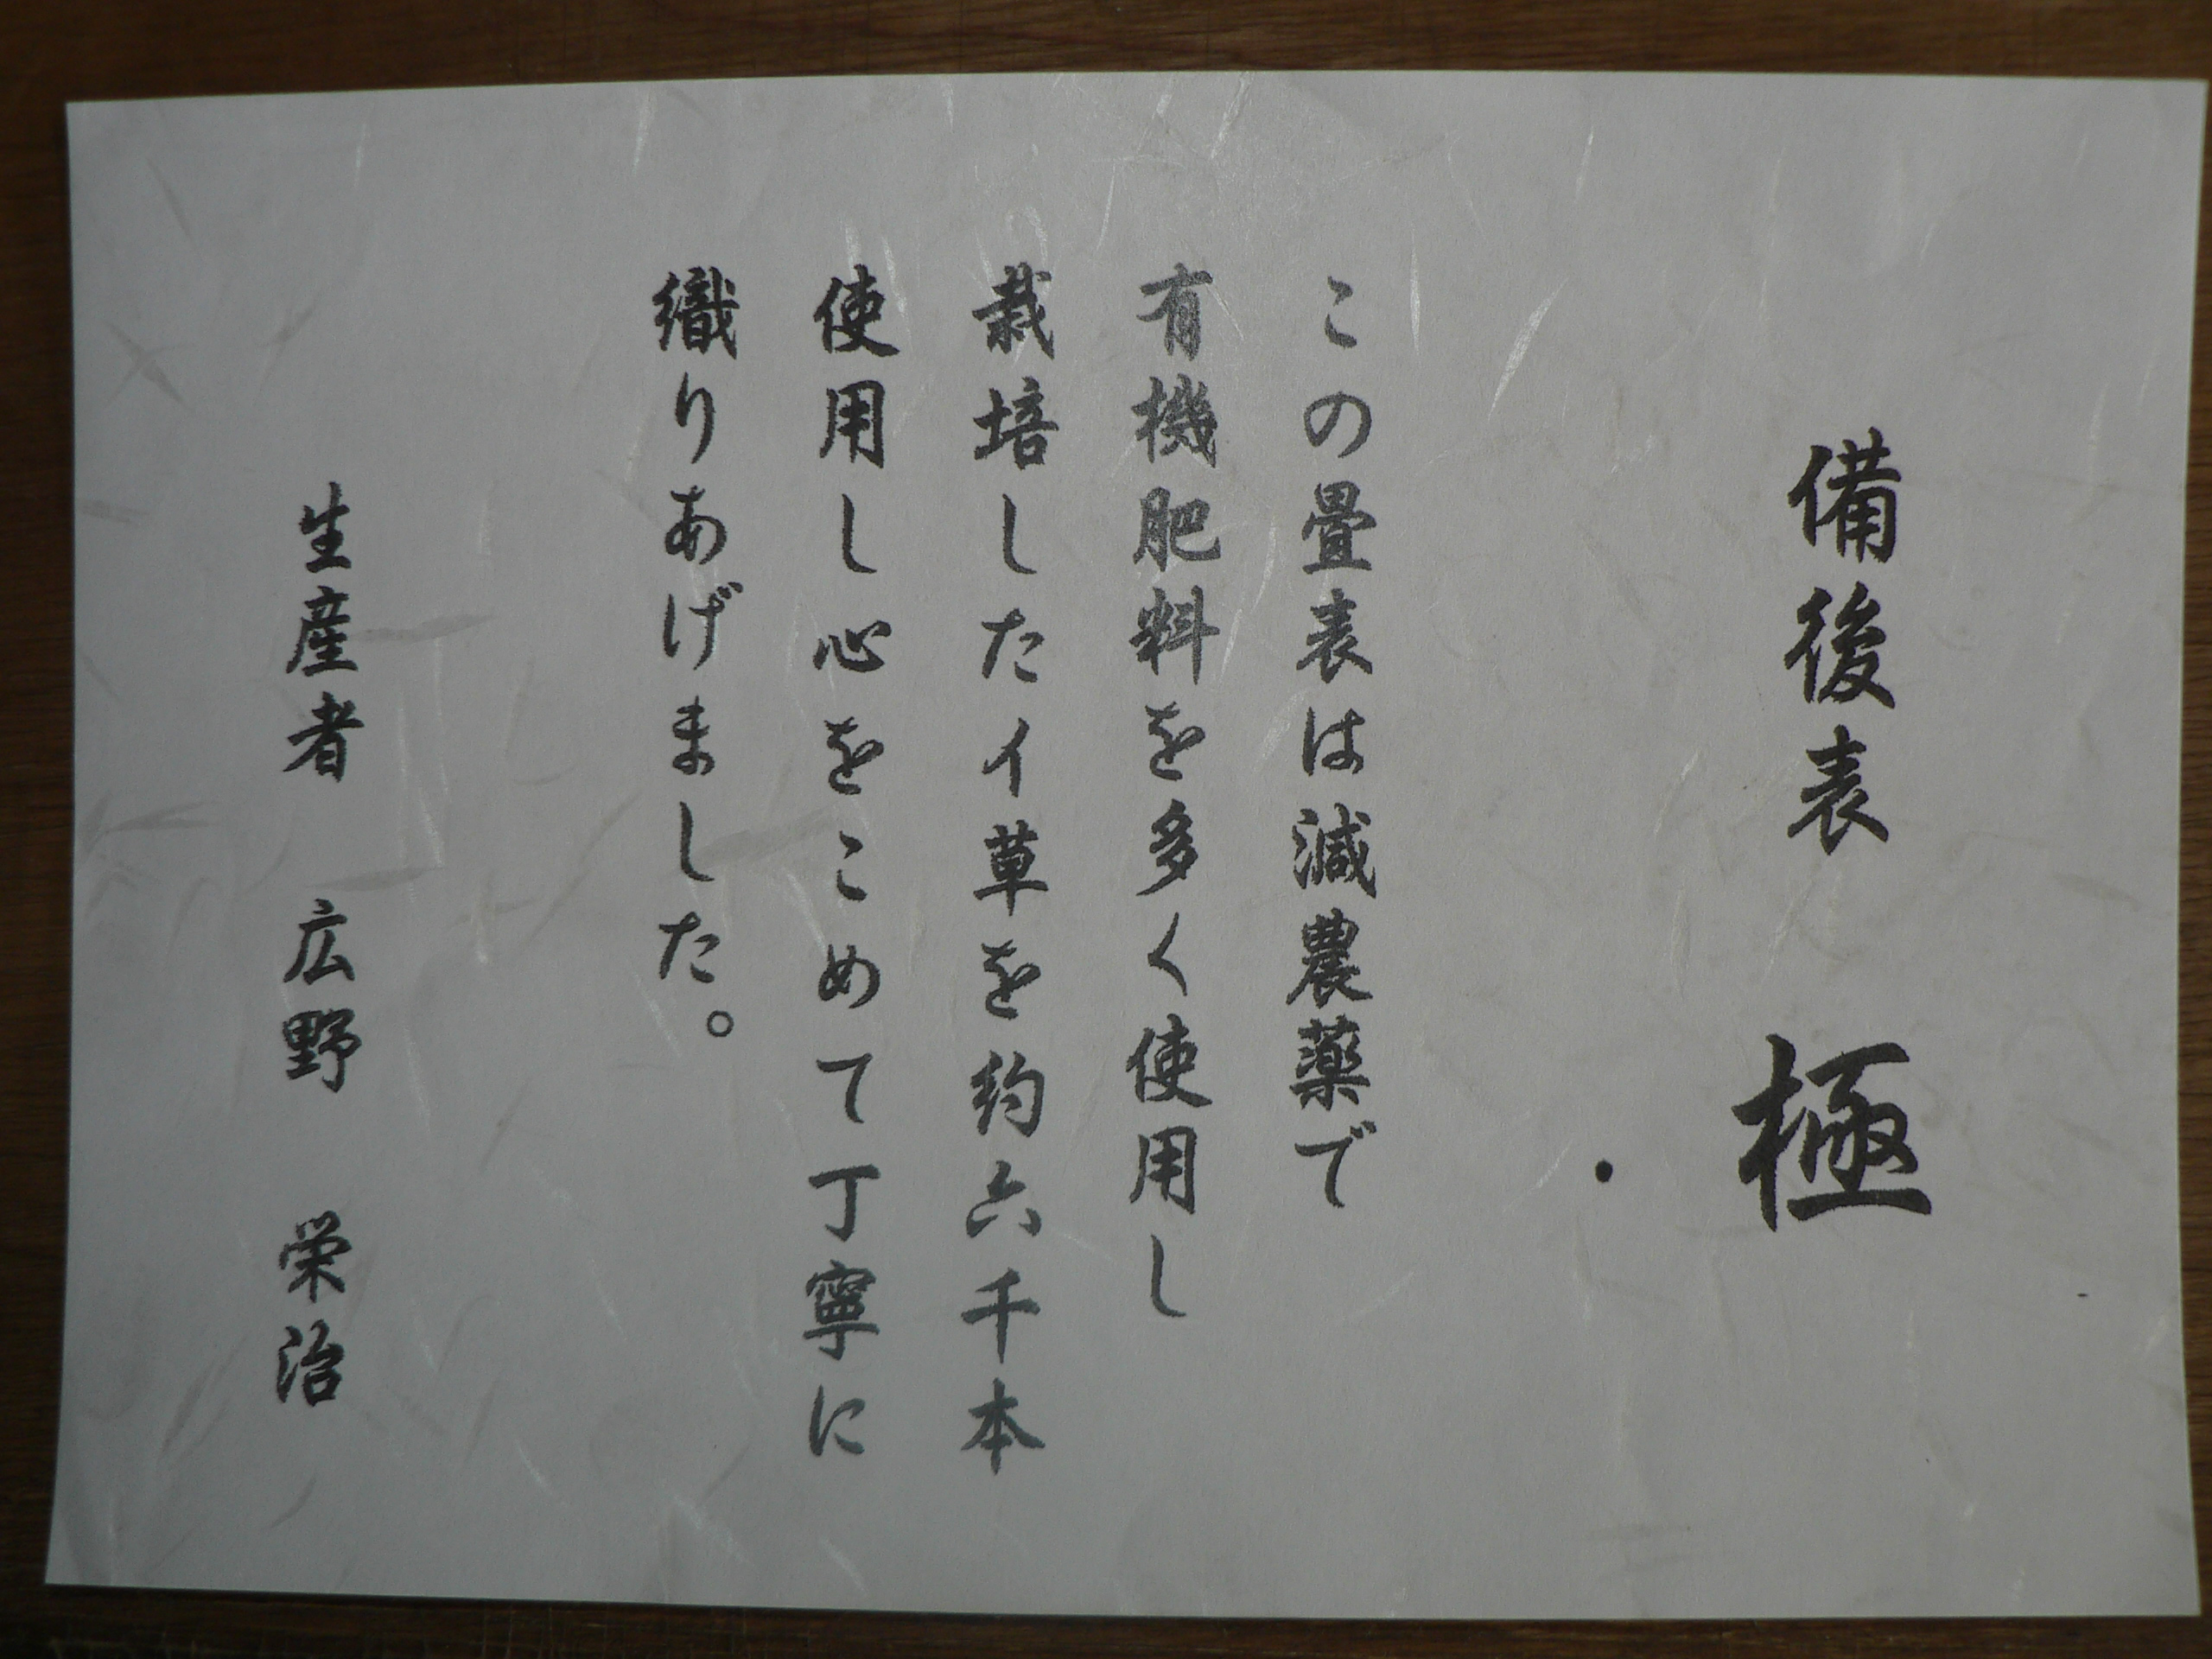 備後表 極
この畳表は減農薬で
有機肥料を多く使用し
栽培したイ草を約六千本
使用し心をこめて丁寧に
織りあげました。
生産者 広野 栄治